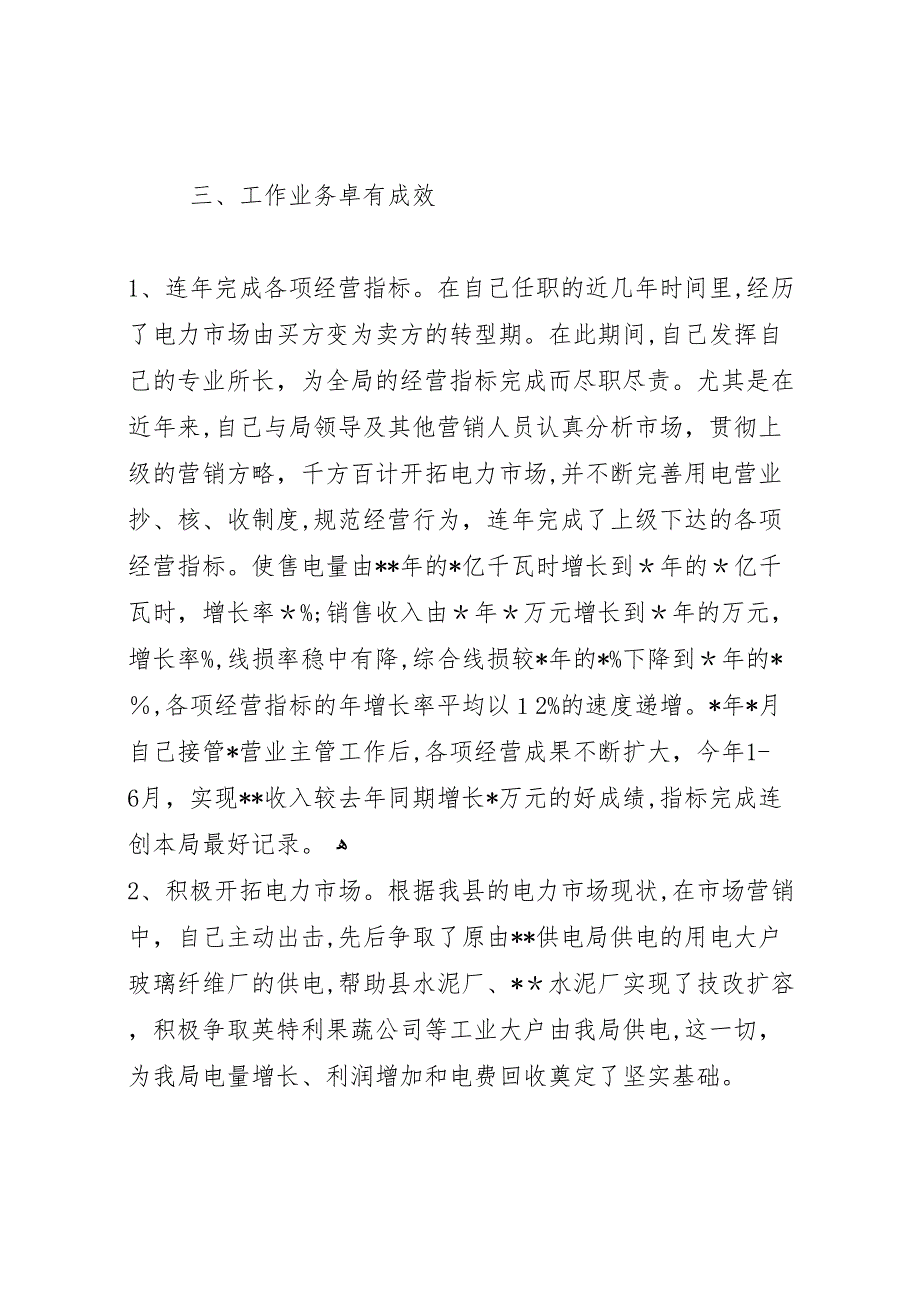 三、工作业务卓有成效
1、连年完成各项经营指标。在自己任职的近几年时间里,经历
了电力市场由买方变为卖方的转型期。在此期间,自己发挥自
己的专业所长，为全局的经营指标完成而尽职尽责。尤其是在
近年来,自己与局领导及其他营销人员认真分析市场，贯彻上
级的营销方略，千方百计开拓电力市场,并不断完善用电营业
抄、核、收制度,规范经营行为，连年完成了上级下达的各项
经营指标。使售电量由**年的*亿千瓦时增长到＊年的＊亿千
瓦时，增长率＊%;销售收入由＊年＊万元增长到＊年的万元，
增长率%,线损率稳中有降,综合线损较*年的*%下降到＊年的*
％,各项经营指标的年增长率平均以１2%的速度递增。*年*月
自己接管*营业主管工作后,各项经营成果不断扩大，今年1-
6月，实现**收入较去年同期增长*万元的好成绩,指标完成连
创本局最好记录。 ﻫ
2、积极开拓电力市场。根据我县的电力市场现状,在市场营销
中，自己主动出击,先后争取了原由**供电局供电的用电大户
玻璃纤维厂的供电,帮助县水泥厂、*＊水泥厂实现了技改扩容
，积极争取英特利果蔬公司等工业大户由我局供电,这一切，
为我局电量增长、利润增加和电费回收奠定了坚实基础。